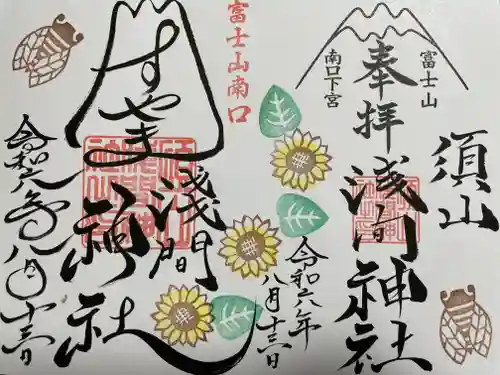 富士山
南口下宮
奉拝
須山
浅間神社
令和六年
八月十三日
富士山南口
すやま
浅間
神社
令和六年八月十三日